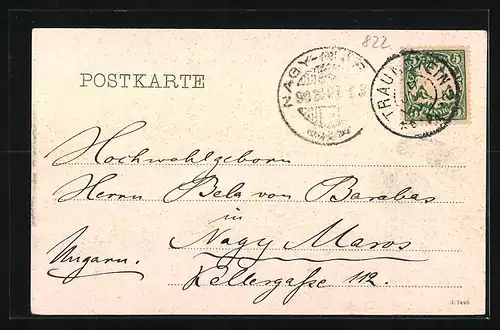 822
POSTKARTE
NAGY-
TRAUNSTEIN
Hochwohlgeboren
Herrn Bela von Barabas
in
Nagy Maros
Ungarn.
Kellergaße 112.
J. 7495